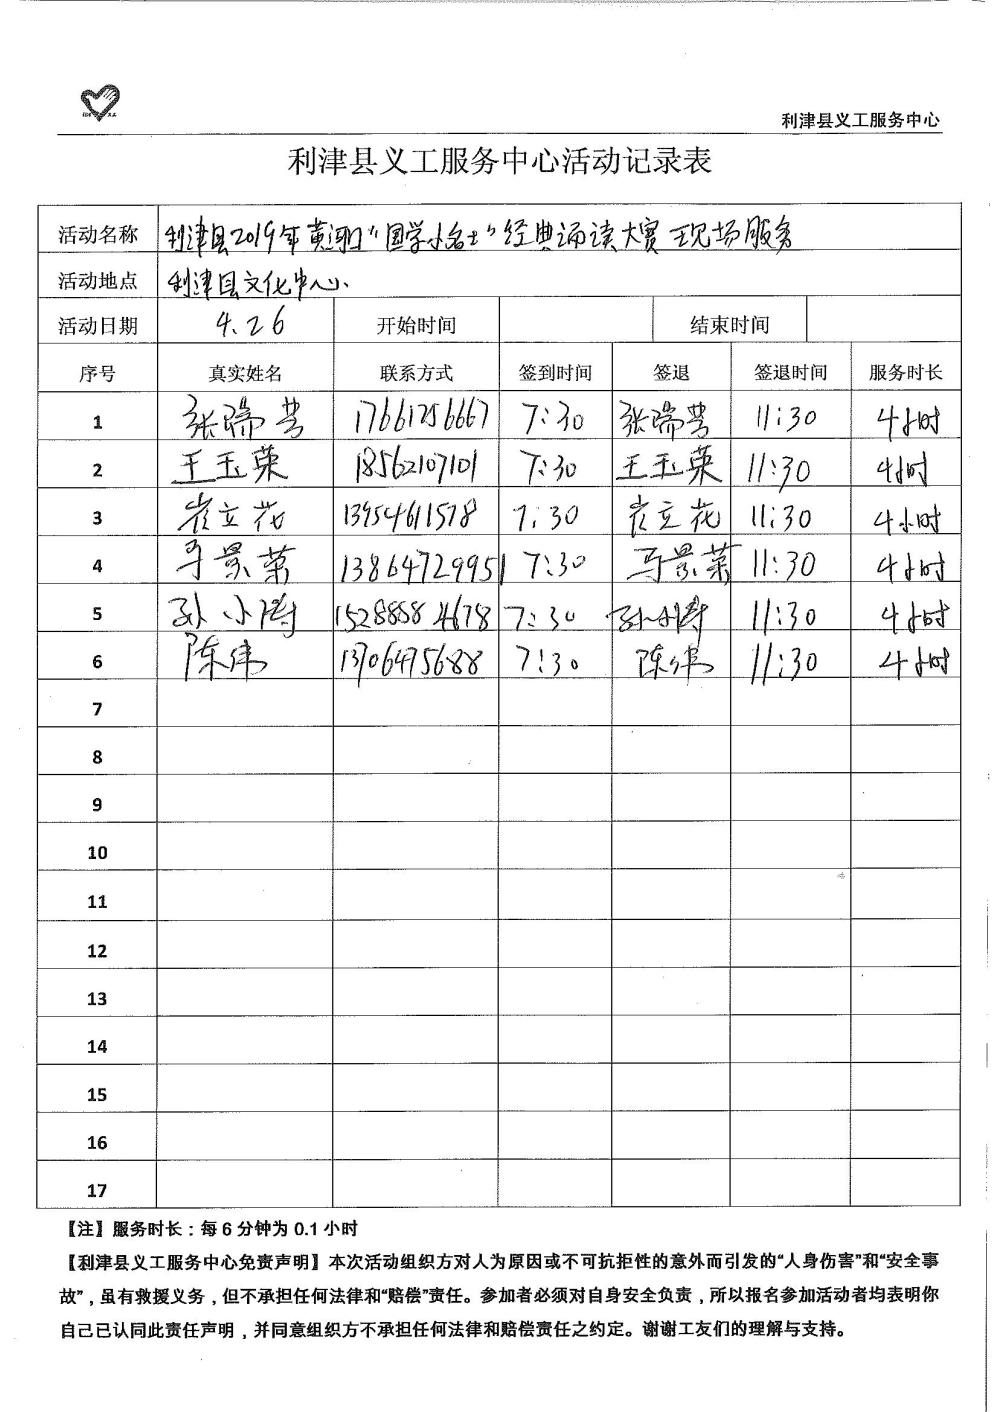 利津县义工服务中心
利津县义工服务中心活动记录表
活动名称 利津县2019年黄河口“国学小名士”经典诵读大赛现场服务
活动地点 利津县文化中心
活动日期 4.26 开始时间 结束时间
序号 真实姓名 联系方式 签到时间 签退 签退时间 服务时长
1 张瑞芳 17661256667 7:30 张瑞芳 11:30 4小时
2 王玉英 18562107101 7:30 王玉英 11:30 4小时
3 崔立花 13954611578 7:30 崔立花 11:30 4小时
4 马景菊 13864729951 7:30 马景菊 11:30 4小时
5 孙小涛 15288584678 7:30 孙小涛 11:30 4小时
6 陈伟 13706475688 7:30 陈伟 11:30 4小时
7
8
9
10
11
12
13
14
15
16
17
【注】服务时长：每6分钟为0.1小时
【利津县义工服务中心免责声明】本次活动组织方对人为原因或不可抗拒性的意外而引发的“人身伤害”和“安全事
故”，虽有救援义务，但不承担任何法律和“赔偿”责任。参加者必须对自身安全负责，所以报名参加活动者均表明你
自己已认同此责任声明，并同意组织方不承担任何法律和赔偿责任之约定。谢谢工友们的理解与支持。